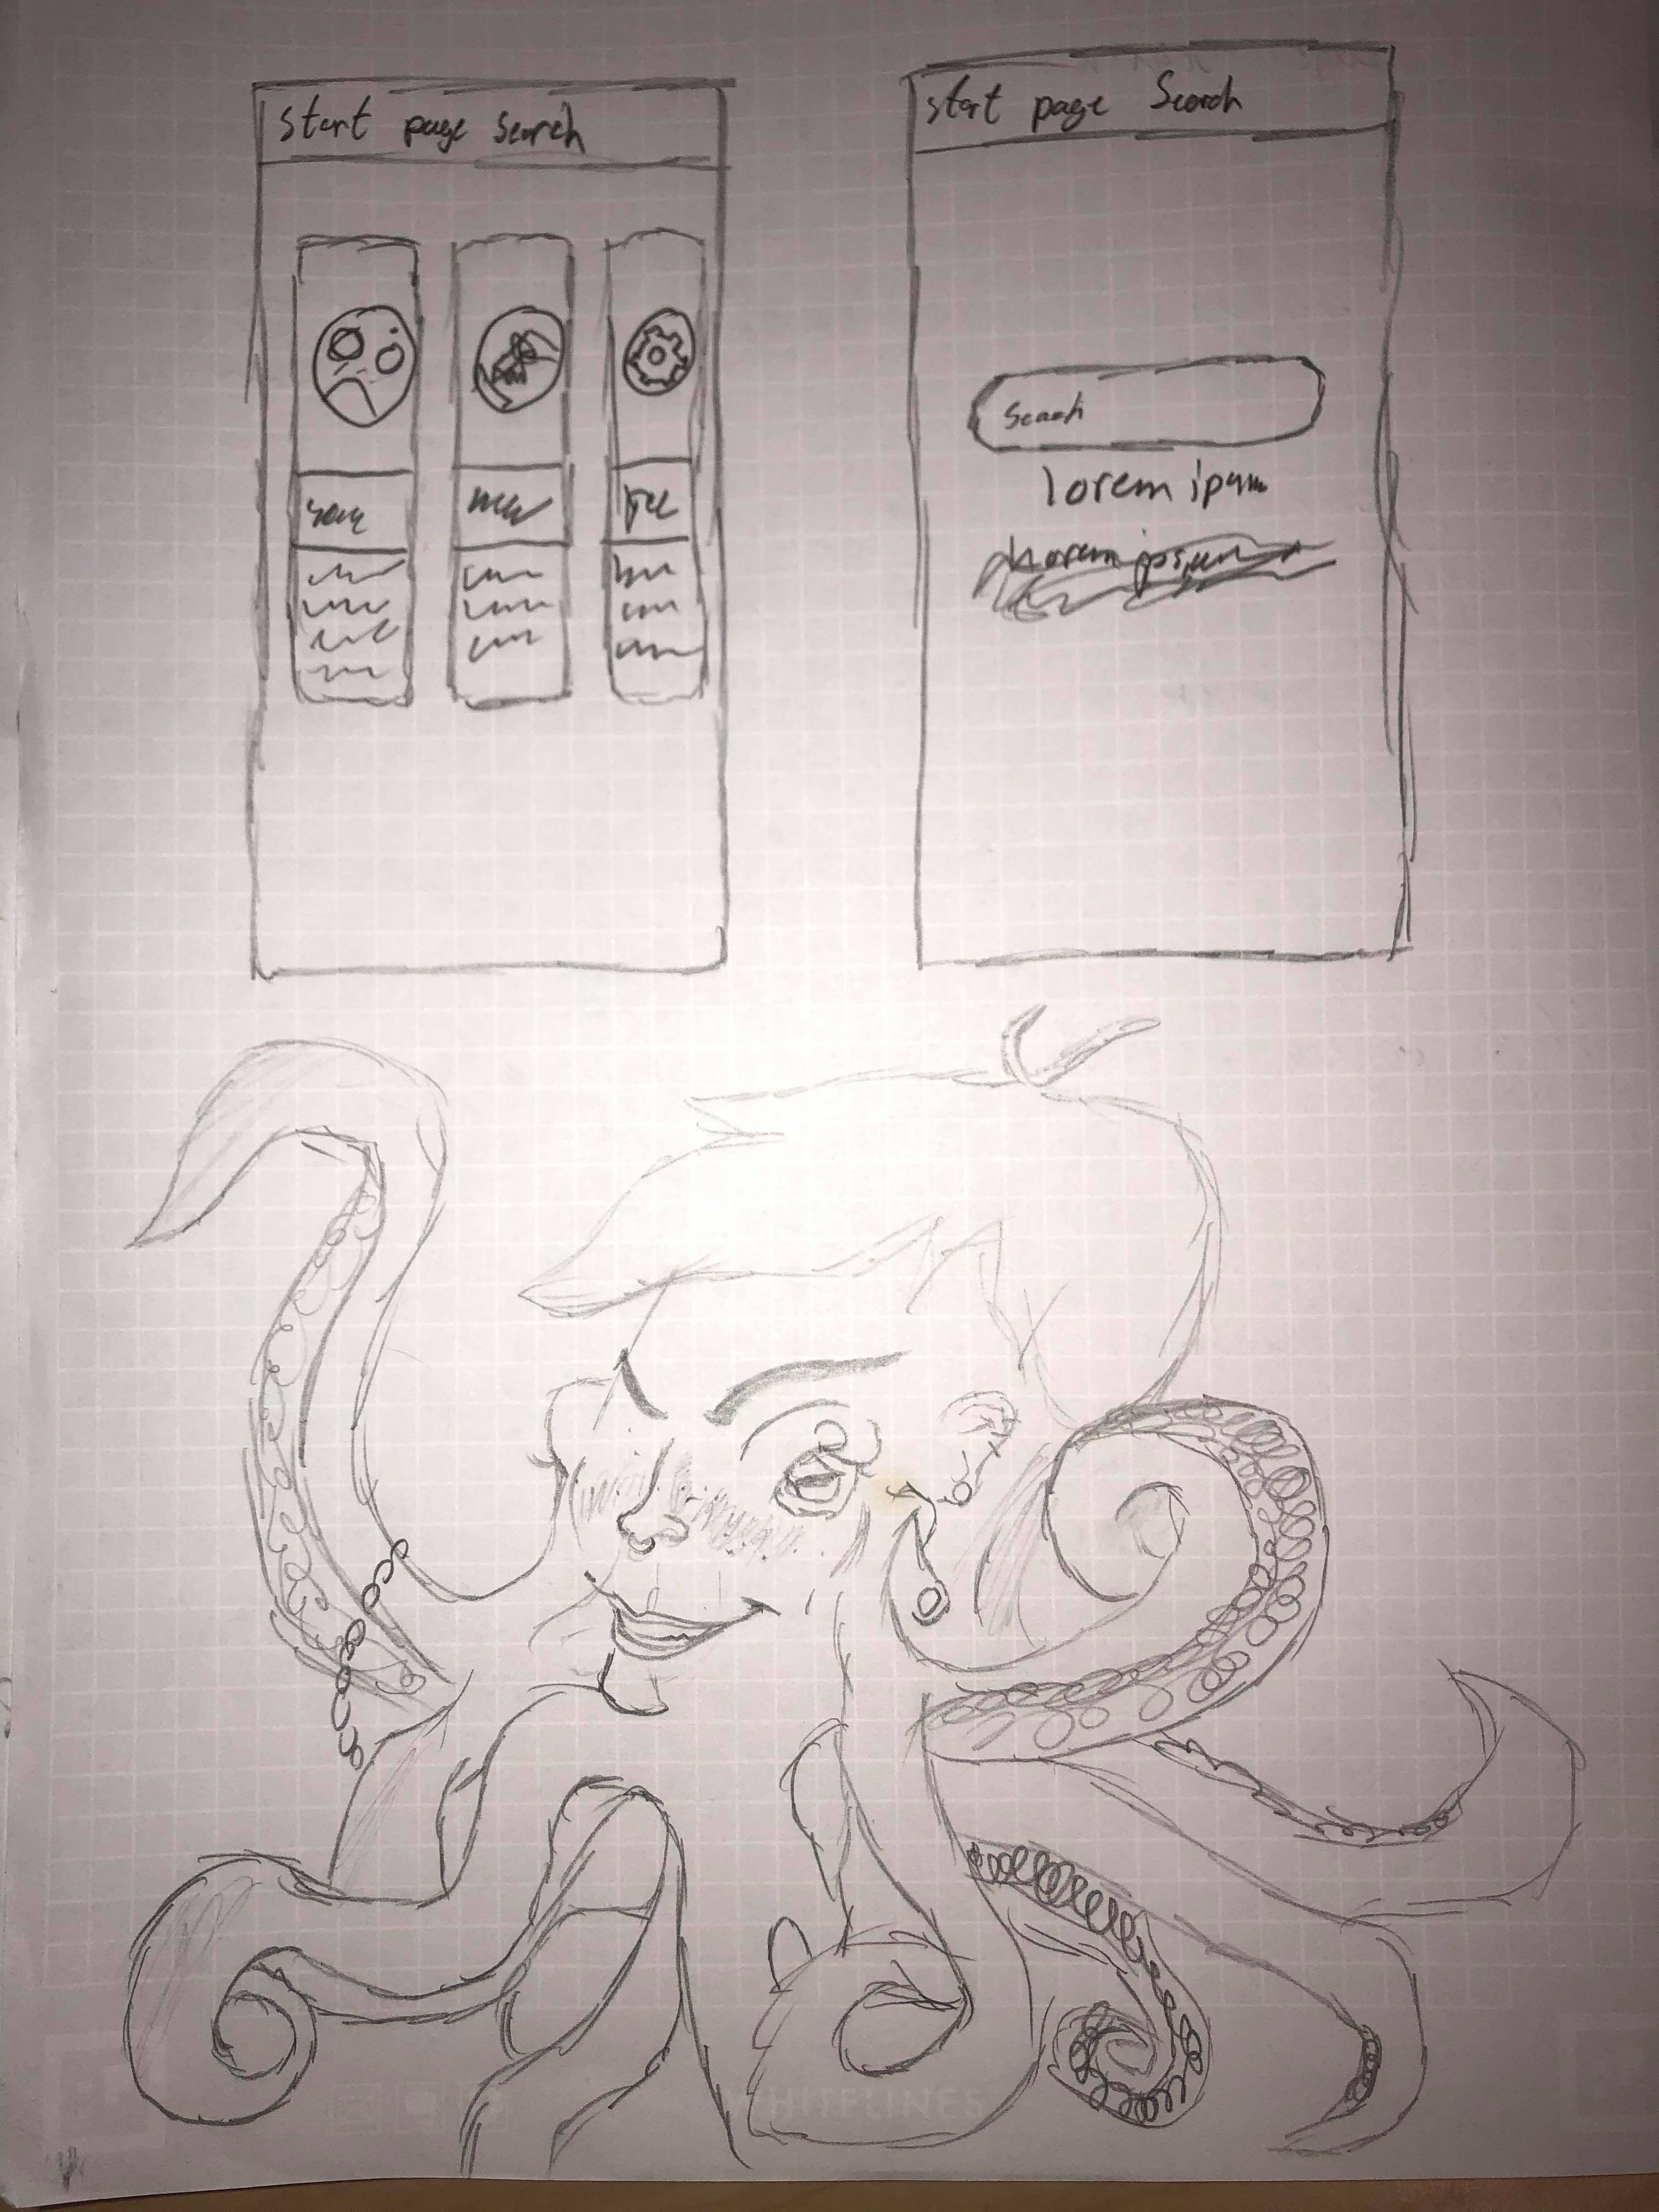 start page Search
start page Search
Search
lorem ipsum
Lorem ipsum
WHITELINES